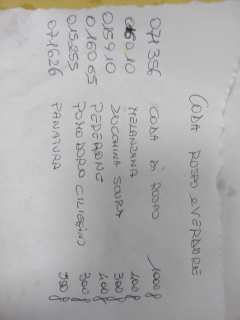 CODA ROSPO e VERDURE
071356 CODA DI ROSPO 1000g
MELANZANA
015910 ZUCCHINA SCURA 300g
016065 PEPERONE 400g
015255 POMODORO CILIEGINO 300g
071626 PANATURA